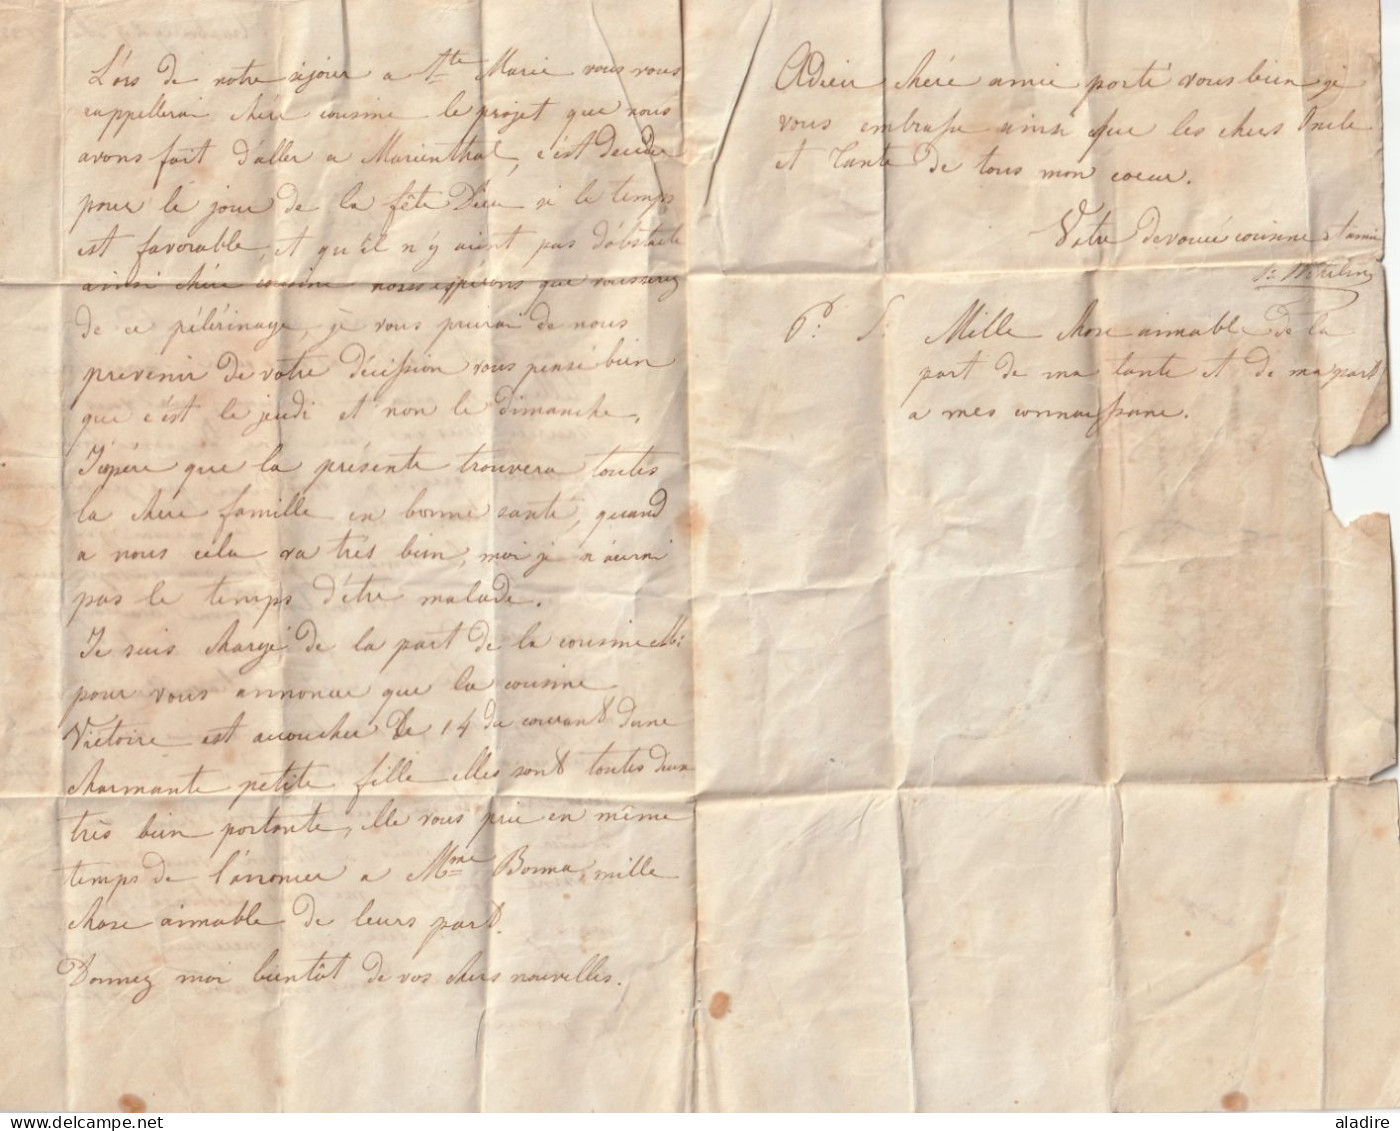 L'ors de notre séjour a Ste Marie vous vous
rappellerai chère cousine le projet que nous
avons fait d'aller a Marienthal, c'est decidé
pour le jour de la fête Dieu si le temps
est favorable, et qu'il n'y aient pas d'obstacle
ainsi chère cousine nous espérons que vous serez
de ce pélérinage, je vous prierai de nous
prevenir de votre décission vous pensé bien
que c'est le jeudi et non le dimanche.
J'éspére que la présente trouvera toutes
la chere famille en bonne santé, quand
a nous cela va trés bien, moi je n'aurai
pas le temps d'être malade.
Je suis chargé de la part de la cousine
pour vous annoncer que la cousine
Victoire est accoucher le 14 du courant d'une
charmante petite fille elles sont toutes deux
très bien portante, elle vous prie en même
temps de l'anoncer a Mme Bonna, mille
chose aimable de leurs part.
Donnez moi bientôt de vos chers nouvelles.
Adieu chére amie porté vous bien je
vous embrasse ainsi que les chers Oncle
et Tante de tous mon coeur.
Votre devouée cousine et amie
P. S. Mille chose aimable de la
part de ma tante et de ma part
a mes connaissance.
aladire